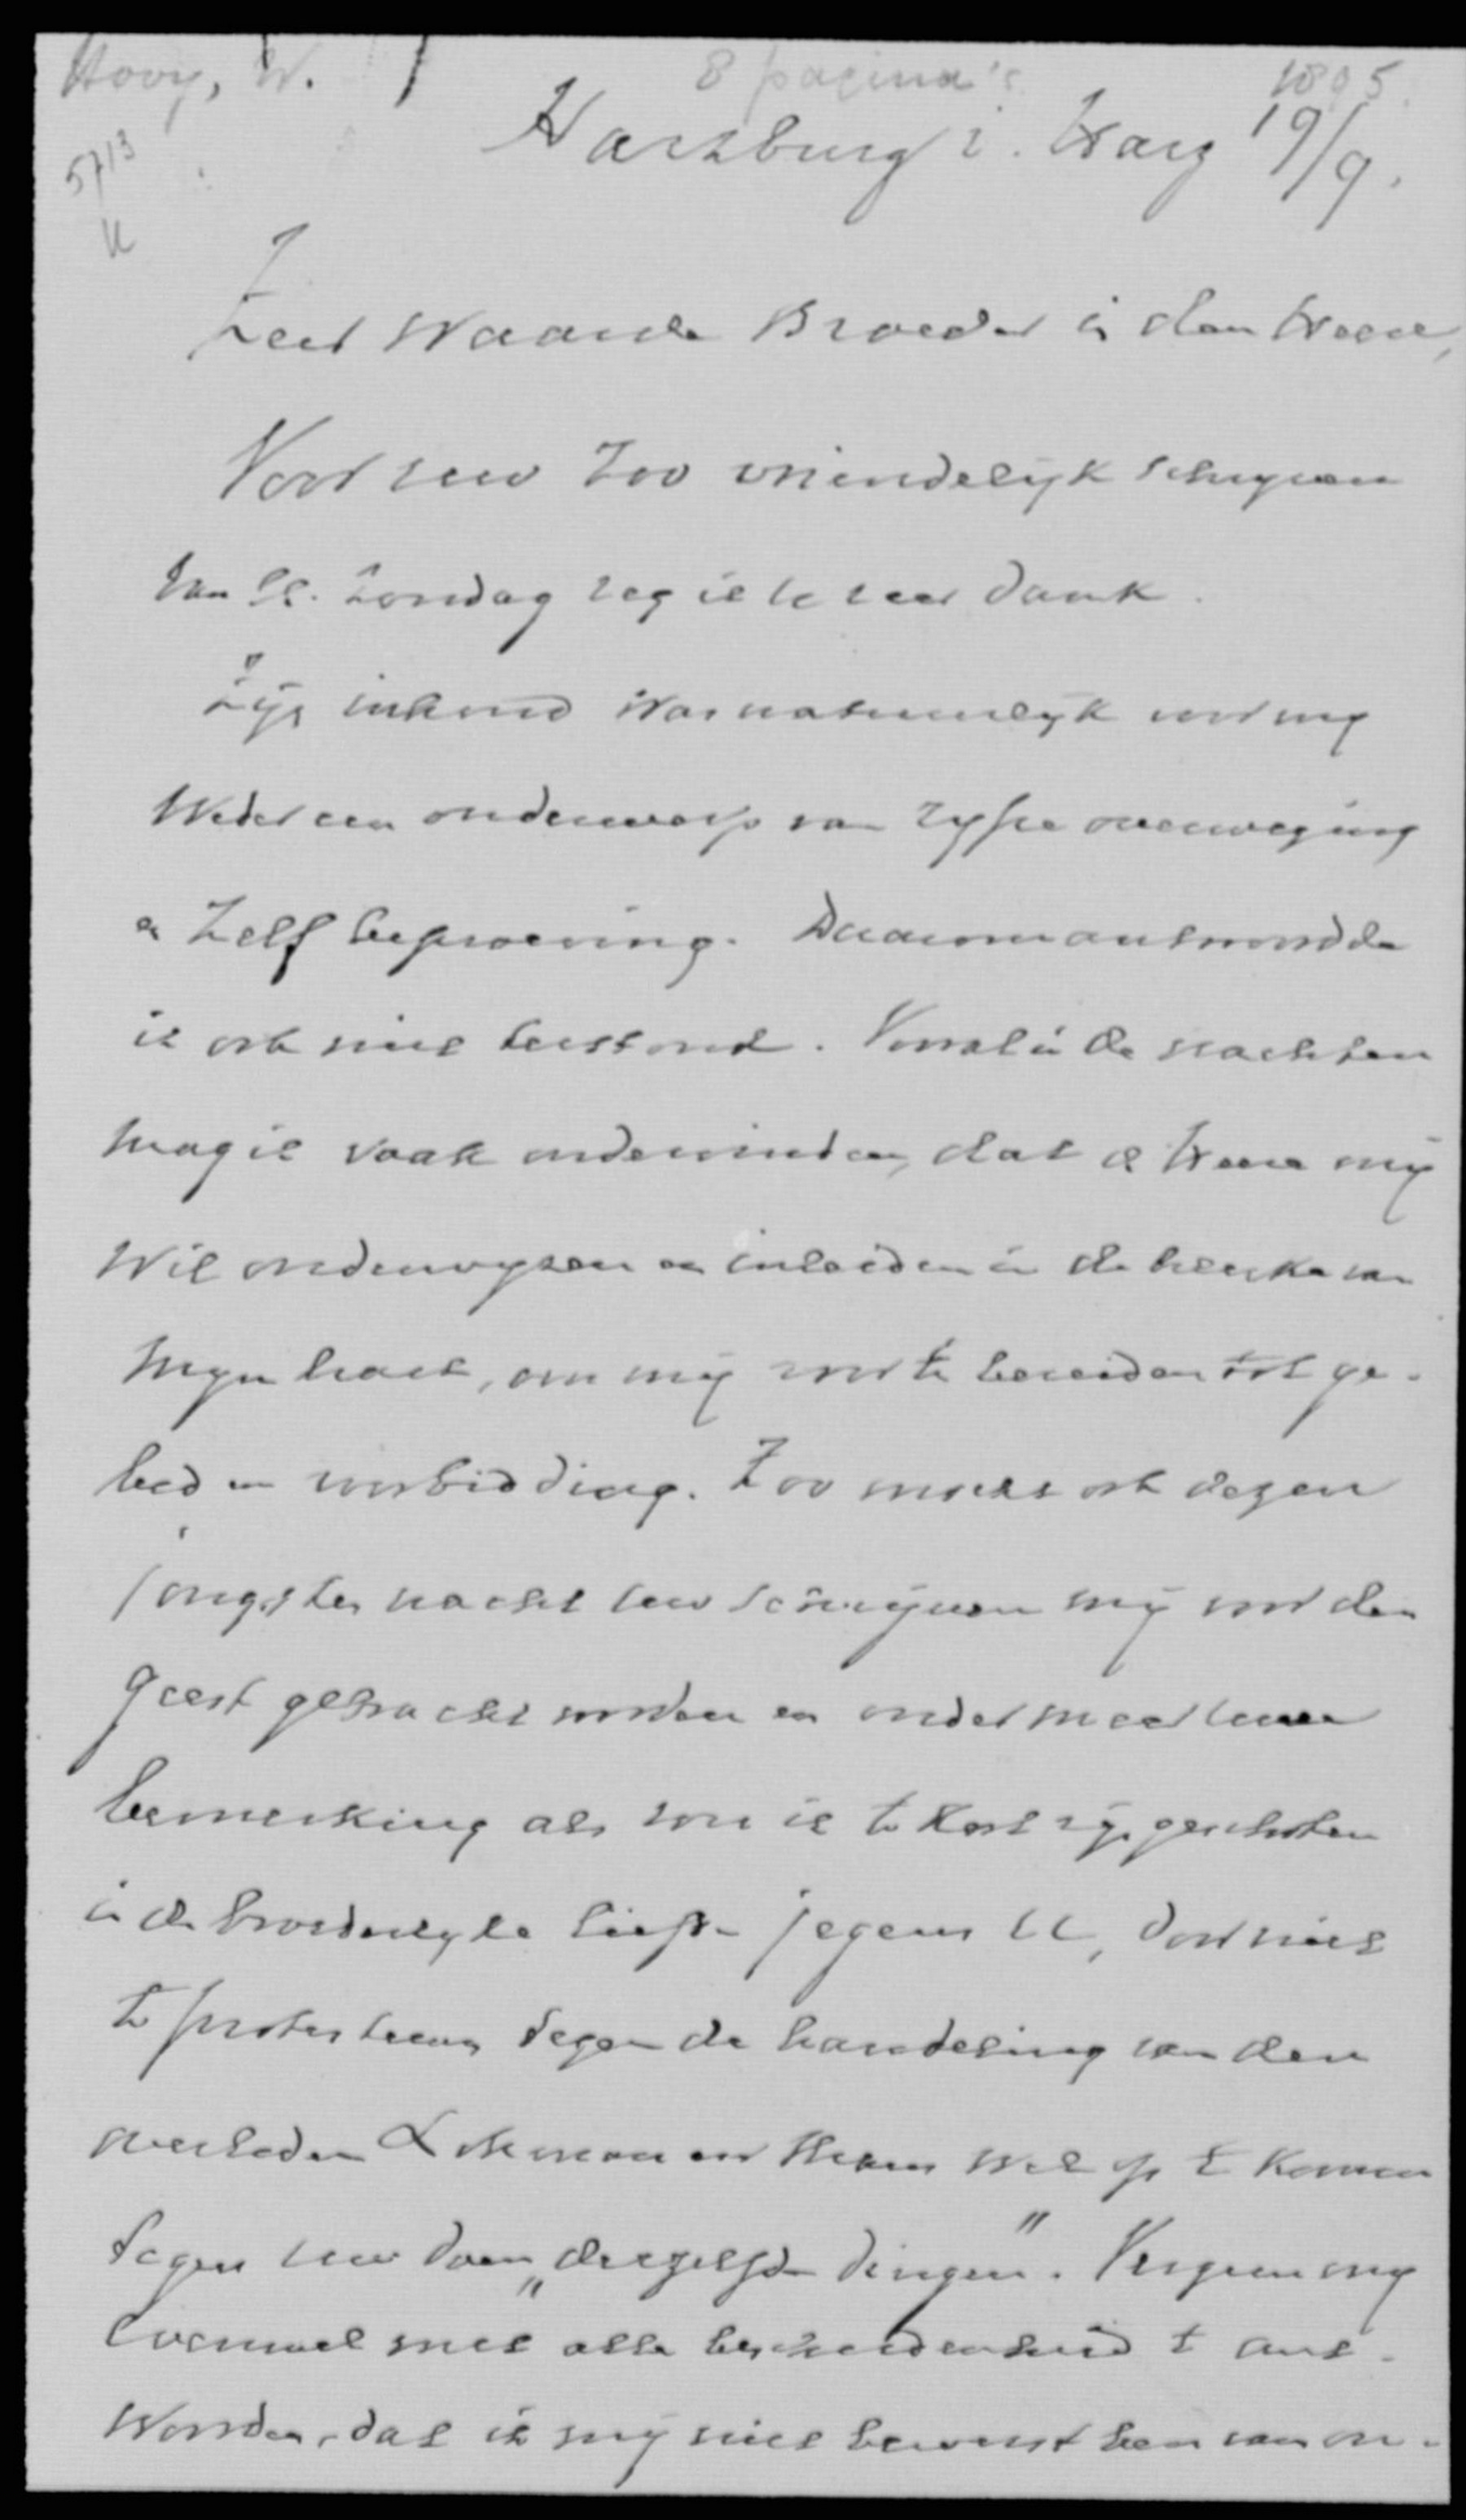 Hovy, W. 8 pagina's 1895.
5713
K
Harzburg i. Harz 19/9.
Zeer Waarde Broeder in den Heere,
Voor uw zoo vriendelijk schrijven
van ll. Zondag zeg ik U zeer dank.
Zijn inhoud was natuurlijk voor mij
Weder een onderwerp van rijpe overweging
en Zelfbeproeving. Daarom antwoordde
ik ook niet terstond. Vooral in de nachten
mag ik vaak ondervinden, dat de Heere mij
Wil onderwijzen en inleiden in de binnenkamer van
Mijn hart, om mij voor te bereiden tot ge-
bed en voorbidding. Zoo mocht ook dezen
jongsten nacht uw schrijven mij voor den
geest gebracht worden en onder meer uwe
bemerking als zou ik te kort zijn geschoten
in de broederlijke liefde jegens U, door niet
te protesteeren tegen de handeling van den
overleden Lohman en thans wel op te komen
tegen uw doen „derzelfde dingen". Vergun mij
evenwel met alle bescheidenheid te ant-
Woorden, dat ik mij niet bewust ben van on-